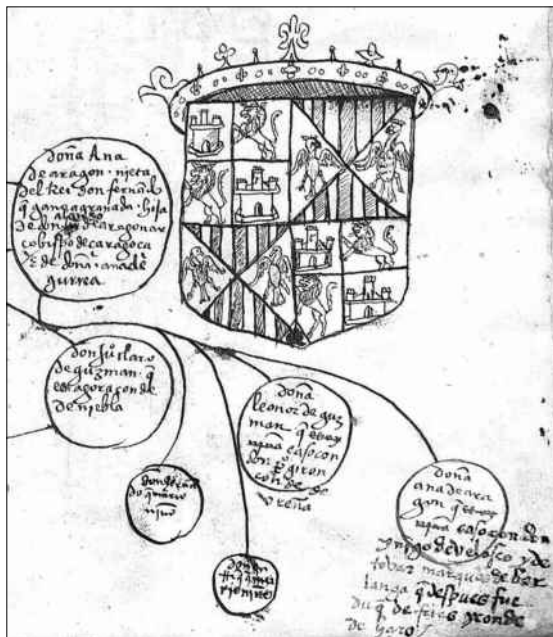 doña Ana
de aragon · njeta
del Rei don fernãdo
q̃ gano a granada · hija
de don alonso de aragon ar
cobispo de caragoca
y de doña ana de
gurrea
don juº claro
de guzman · q̃
es agora conde
de niebla
doña
leonor de guz
man q̃
caso con
don pº giron
conde de
vreña
do q̃ murio
niño
don
q̃ mu
rio niño
doña
ana de ara
gon q̃
caso con don
ynigo de velasco y de
tovar marques de ber
langa q̃ despues fue
duq̃ de frias y conde
de haro